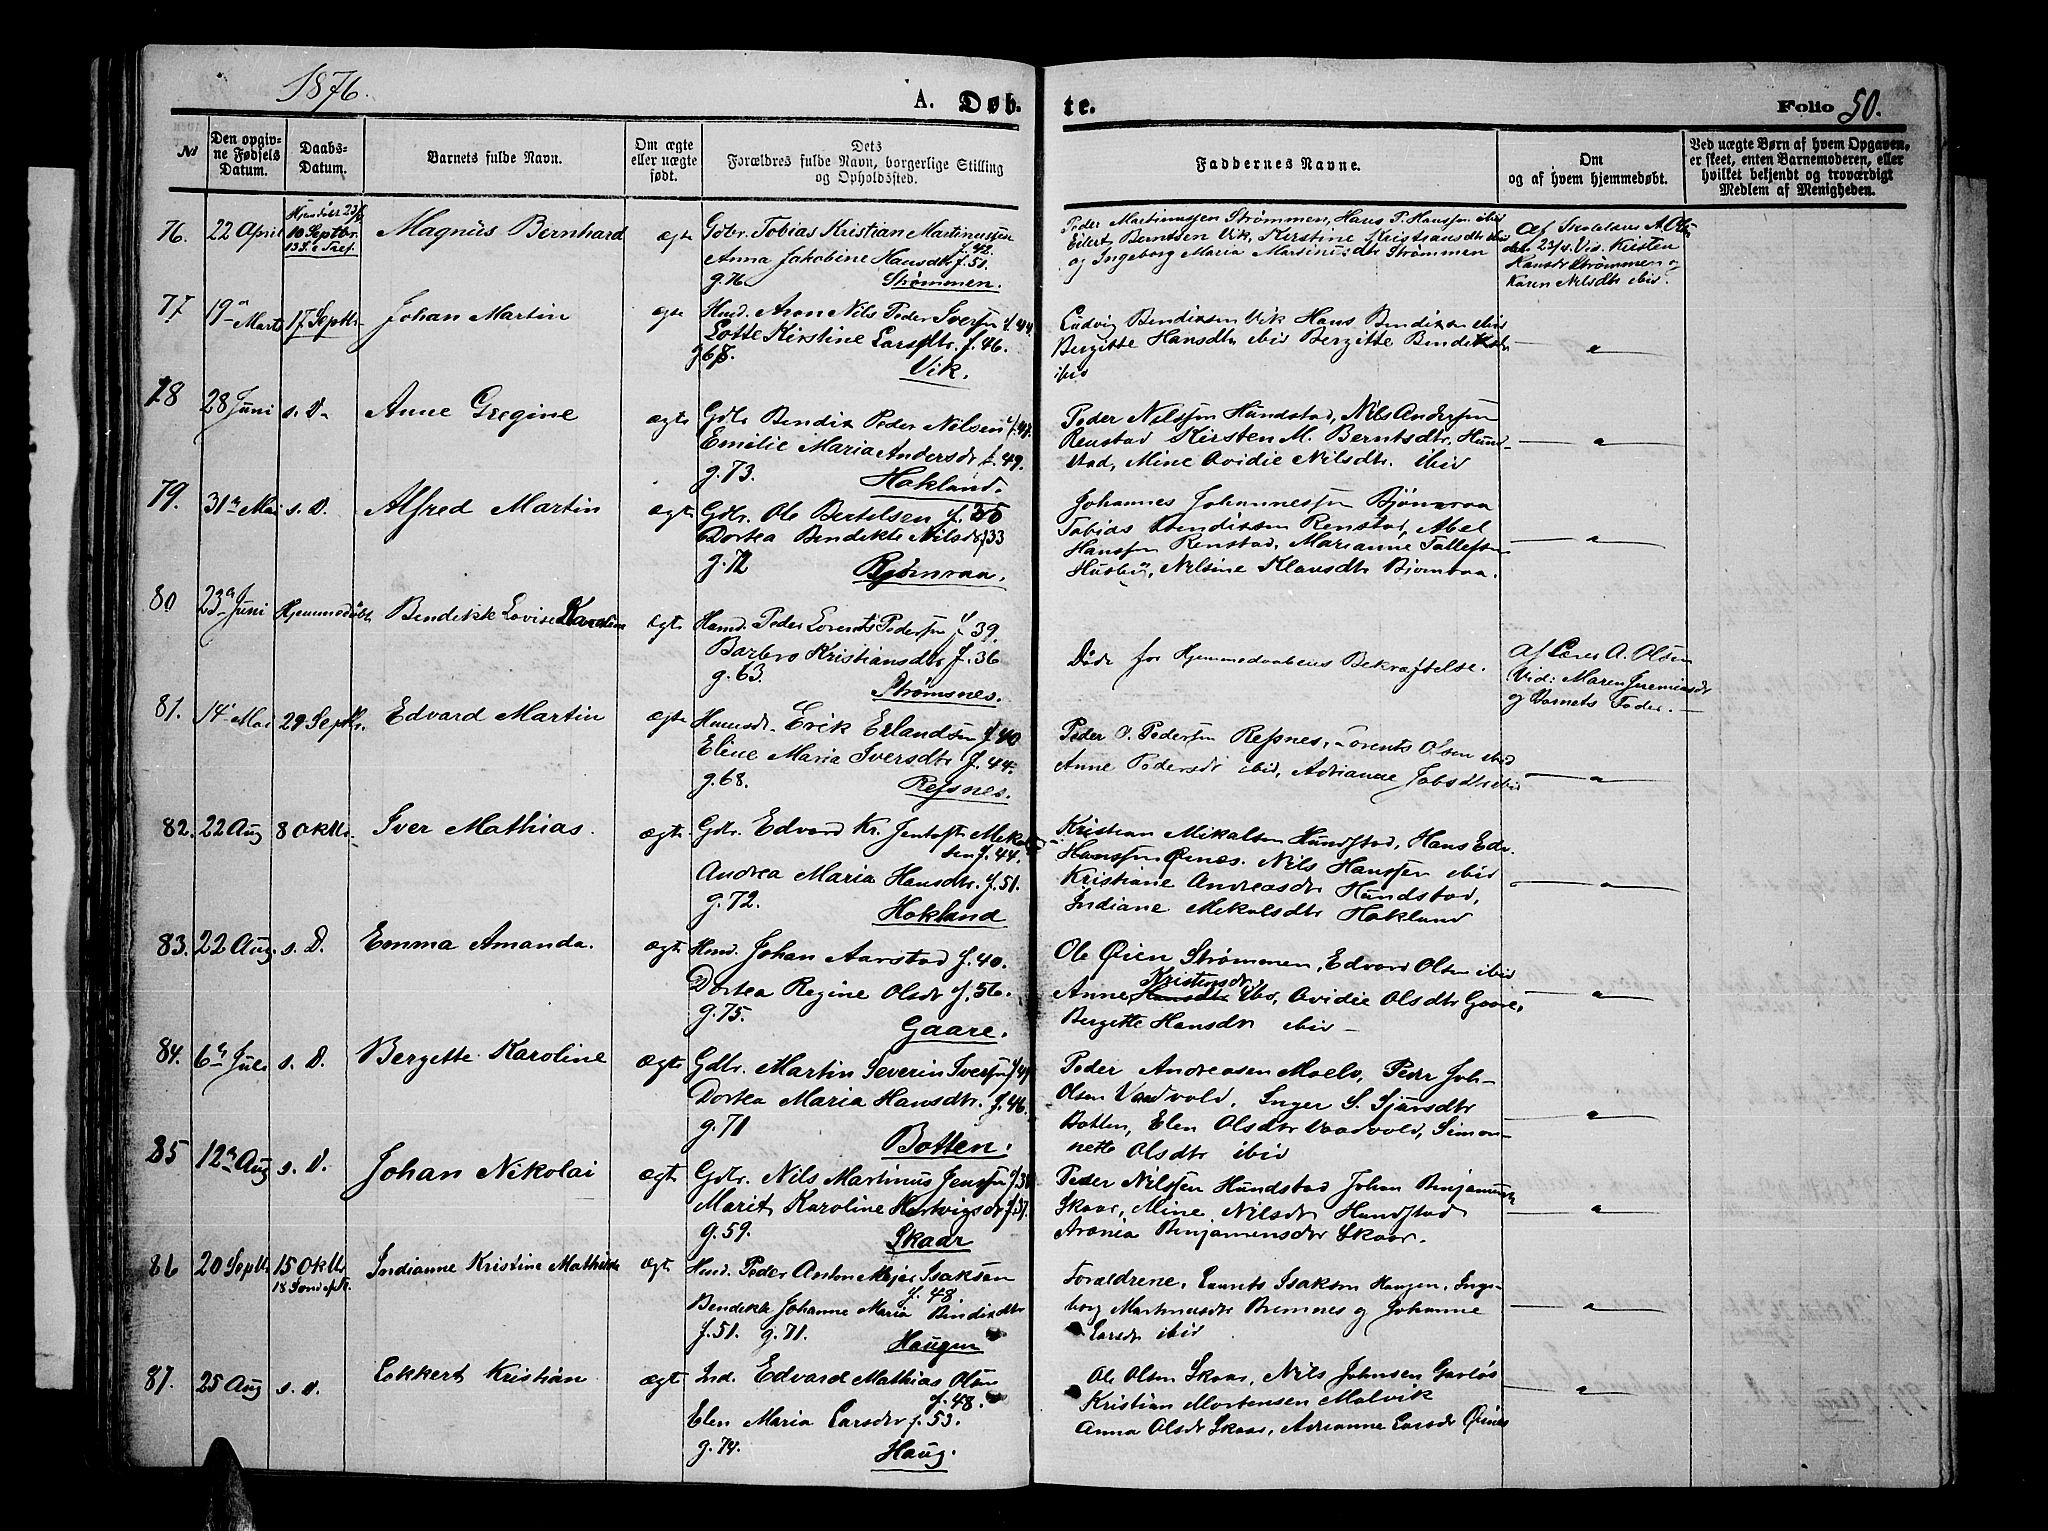 1876.
A. Døb-
te.
Folio 50.
No
Den opgiv-
ne Fødsels
Datum.
Daabs-
Datum.
Barnets fulde Navn.
Om ægte
eller uægte
født.
Dets
Forældres fulde Navn, borgerlige Stilling
og Opholdssted.
Faddernes Navne.
Om
og af hvem hjemmedøbt.
Ved uægte Børn af hvem Opgaven,
er skeet, enten Barnemoderen, eller
hvilket bekjendt og troværdigt
Medlem af Menigheden.
76. 22 April
10 Septbr.
Magnus Bernhard
ægte
Gdbr. Tobias Kristian Martinussen
f. 42.
Anna Jakobine Hansdtr f. 51.
g. 76
Strømmen.
Peder Martinussen Strømmen, Hans P. Hanssen ibid
Eilert Berntsen Vik, Kirstine Kristiansdtr ibid
og Ingeborg Maria Martinusdtr Strømmen
den 23/4. Vid. Kristen
Hansdtr Strømmen og
Karen Nilsdtr ibid.
77. 19 Marts 17 Septbr.
Johan Martin
ægte
Husmd. Aron Nils Peder Iversen f. 44.
Lotte Kirstine Larsdtr. f. 46.
g. 68.
Vik.
Ludvig Bendixsen Vik Hans Bendixsen ibid
Bergitte Hansdtr ibid Bergitte Bendiktsdtr
ibid
78 28 Juni s. D.
Anne Gregine
ægte
Gdbr Bendix Peder Nilsen f. 47.
Emilie Maria Andersdtr f. 49.
g. 73.
Hokland.
Peder Nilssen Hundstad, Nils Andersen
Renstad Kirsten M. Berntsdtr. Hund-
stad, Mine Ovidie Nilsdtr. ibid
79. 31 Mai s. D.
Alfred Martin
ægte
Gdbr. Ole Bertelsen f.
Dortea Bendikte Nilsdtr f 33
g. 72
Bjønraa.
Johannes Johannessen Bjønraa
Tobias Bendixsen Renstad, Abel
Hanssen Renstad, Marianne Tollefsen
Husby, Nilsine Klausdtr Bjønraa.
80 23 Juni Hjemmedøbt
Bendikte Lovise Karoline
ægte
Husmd. Peder Lorents Pedersen f. 39.
Barbro Kristiansdtr f. 36
g. 63.
Strømsnes.
Døde før Hjemmedaabens Bekræftelse.
Af Lærer A. Olsen
Vid: Maren Jeremiasdtr
og Barnets Fader.
81. 14 Mai 24 Septbr.
Edvard Martin
ægte
Husmd. Erik Erlandsen f. 40
Eline Maria Iversdtr f. 44.
g. 68.
Refsnes.
Peder O. Pedersen Refsnes, Lorents Olsen ibid
Anne Pedersdtr ibid, Adrianne Jobsdtr ibid
82. 22 Aug 8 Oktbr.
Iver Mathias.
ægte
Gdbr. Edvard Kr. Jentoft Mikal-
sen f. 44.
Andrea Maria Hansdtr. f. 51.
g. 72.
Hokland
Kristian Mikalsen Hundstad, Hans Edv.
Hanssen Øines. Nils Hanssen ibid
Kristiane Andreasdtr Hundstad,
Indiane Mikalsdtr Hokland
83. 22 Aug. s. D.
Emma Amanda.
ægte
Husmd. Johan Aarstad f. 40.
Dortea Regine Olsdtr f. 56.
g. 75.
Gaare.
Ole Øien Strømmen, Edvard Olsen ibid
Kristensdtr
Anne Hansdtr ibid, Ovidie Olsdtr Gaare,
Bergette Hansdtr ibid
84. 6 Juli s. D.
Bergette Karoline
ægte
Gdbr. Martin Severin Iversen f.
Dortea Maria Hansdtr. f. 46.
g. 71
Botten.
Peder Andreasen Moelv, Peder Joh-
Olsen Vaadvold, Inger S. Sjursdtr
Botten, Elen Olsdtr Vaadvold, Simon-
nette Olsdtr ibid
85 12 Aug s. D.
Johan Nikolai
ægte
Gdbr. Nils Martinus Jenssen f. 38
Marit Karoline Hartvigsdtr f. 37.
g. 59.
Skaar
Peder Nilssen Hundstad Johan Benjaminsen
Skaar, Mine Nilsdtr Hundstad
Aronia Benjamensdtr Skaar.
86 20 Septbr 15 Oktbr.
Indianne Kristine Mathilde
ægte
Husmd. Peder Anton Mejer Isaksen
f. 48.
Bendikte Johanne Maria Bendixdtr
f. 51. g. 71.
Haugen
Forældrene, Laurits Isaksen Haugen, Inge-
borg Martinusdtr Bremnes og Johanne
Larsdtr ibid
87. 25 Aug s. D.
Eckkert Kristian
ægte
Ind. Edvard Mathias Olsen
f. 48.
Elen Maria Larsdtr f. 53.
g. 74.
Haug.
Ole Olsen Skaar, Nils Johnsen Garløs
Kristian Mortensen Malvik
Anna Olsdtr Skaar, Adrianne Larsdtr Øines